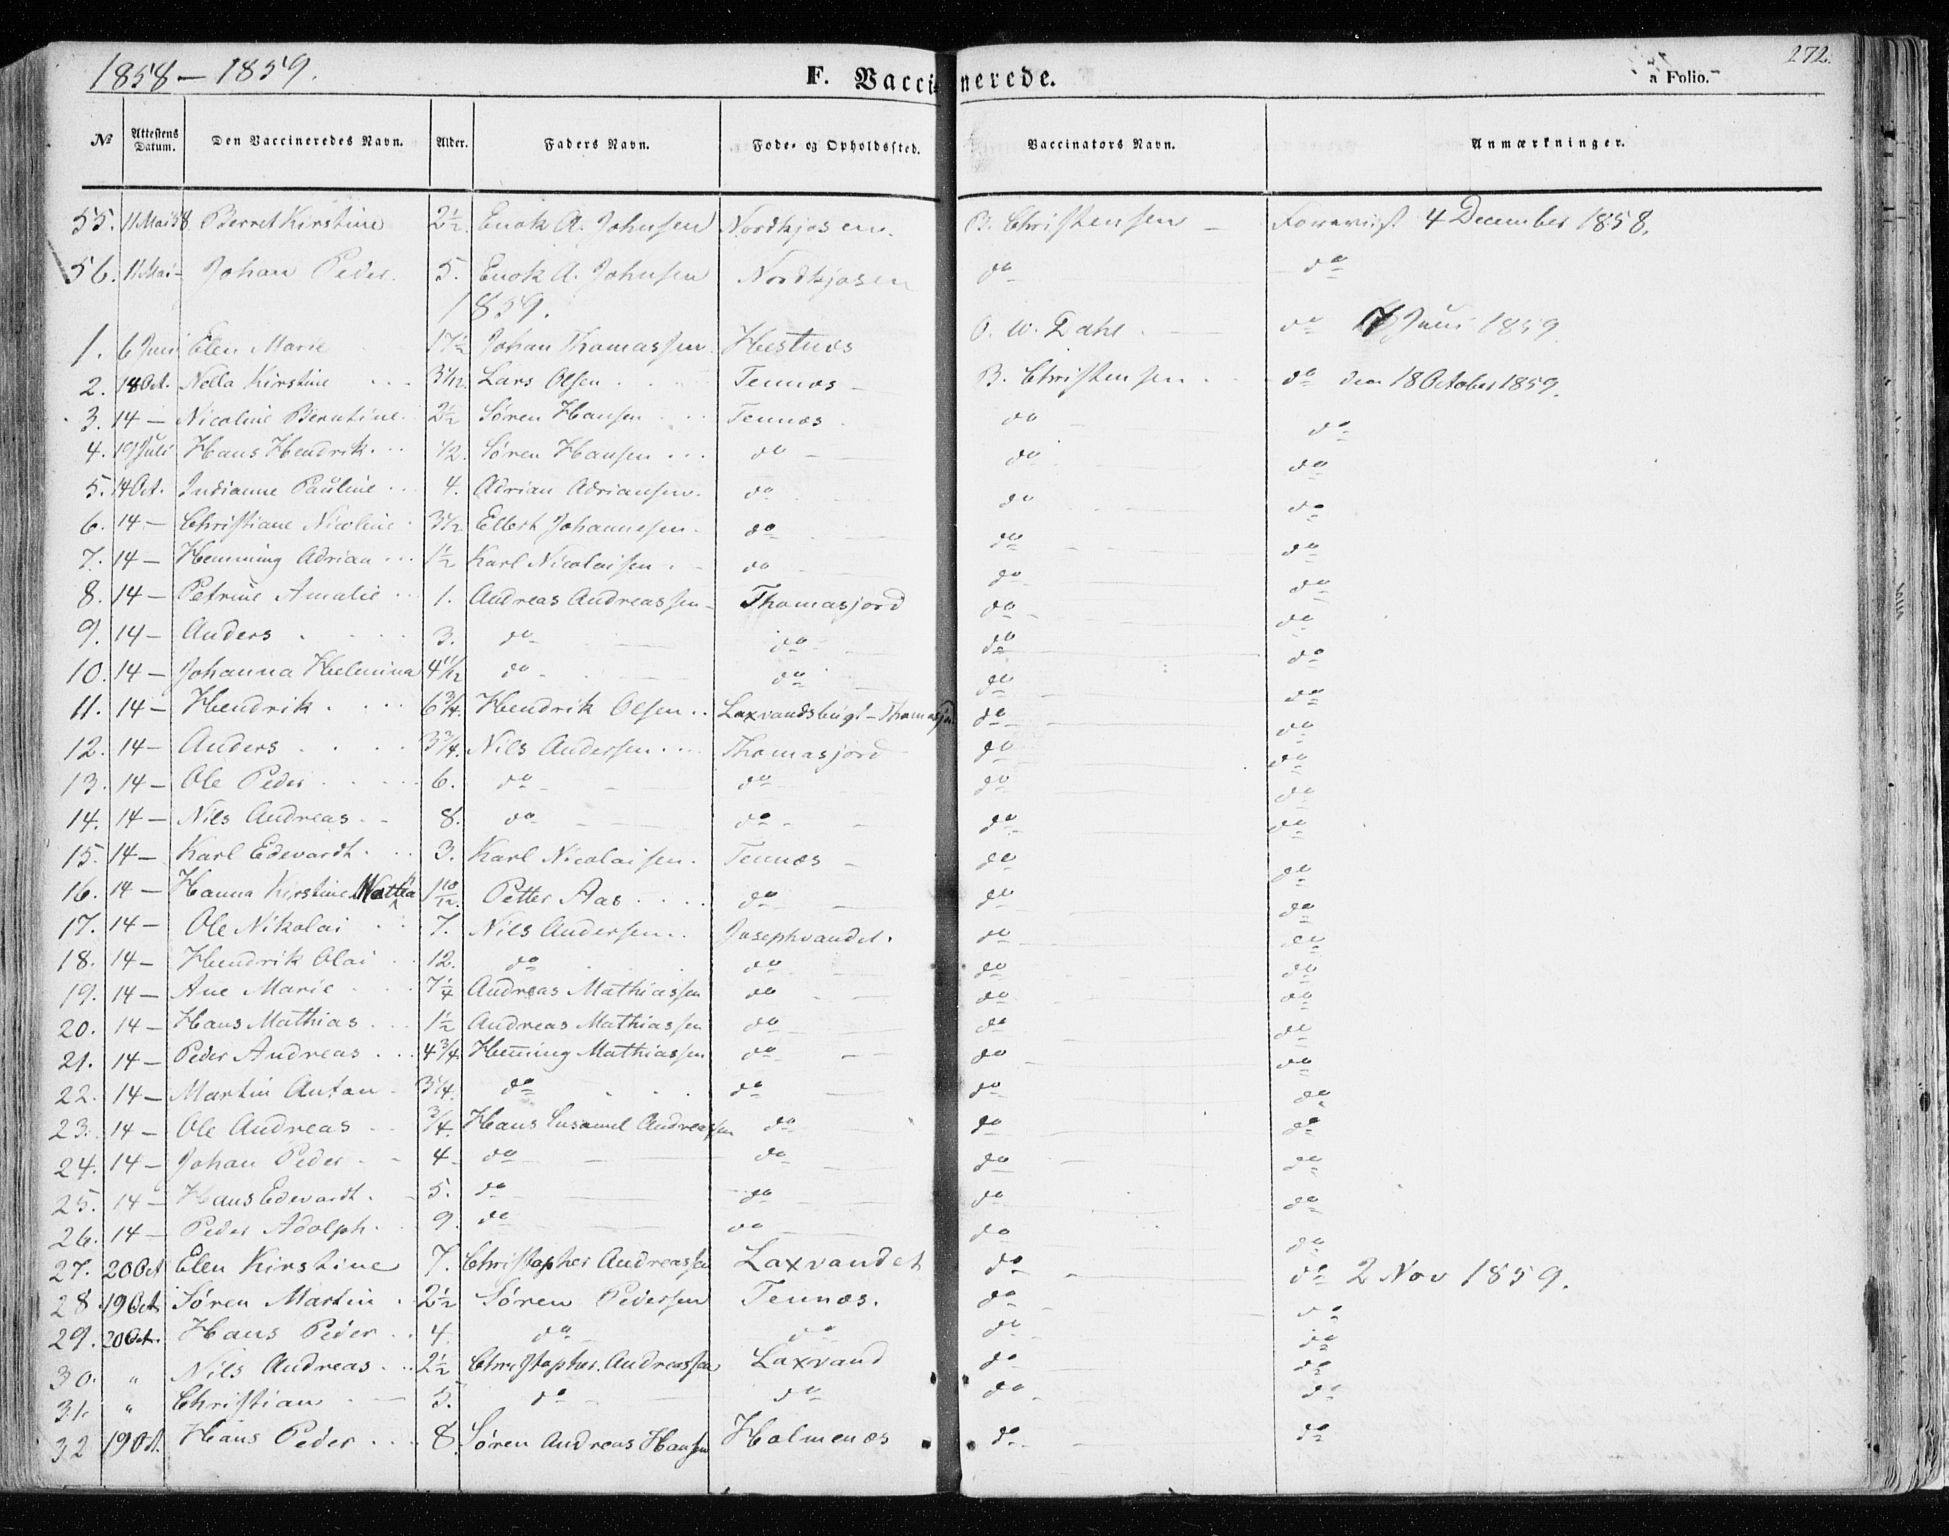 1858 – 1859. F. Vaccinerede. a Folio. 272.
No Attestens Datum. Den Vaccineredes Navn. Alder. Faders Navn. Føde- og Opholdssted. Vaccinators Navn. Anmærkninger.
55. 11 Mai 58 Berret Kirstine 2 1/2. Enok A. Johnsen Nordkjosen. B. Christensen – Foreviist 4 December 1858.
56. 11 Mai – Johan Peder. 5. Enok A. Johnsen Nordkjosen do do
1859.
1. 6 Juni Elen Marie 17 1/2 Johan Thomassen Hestnæs O. W. Dahl. do 7 Juni 1859.
2. 18 Oct. Nella Kirstine 3 1/12. Lars Olsen Tennæs B. Christensen do den 18 October 1859.
3. 14 – Nicoline Berntine 2 1/2 Søren Hansen Tennæs do do
4. 19 Juli Hans Hendrik 1/2. Søren Hansen do do do
5. 14 Oct. Indianne Pauline 4. Adrian Adriansen. do do do
6. 14 – Christiane Nicoline 3 1/2 Ellert Johannesen do do do
7. 14 – Hemming Adrian 1 1/2 Karl Nicolaisen do do do
8. 14 – Petrine Amalie 1. Andreas Andreassen Thomasjord do do
9. 14 – Anders 3. do do do do
10. 14 – Johanna Helmina 4 11/12 do do do do
11. 14 – Hendrik 6 3/4. Hendrik Olsen Laxvandsbugt – Thomasjord do do
12. 14 – Anders 3 3/4. Nils Andersen Thomasjord do do
13. 14 – Ole Peder 6. do do do do
14. 14 – Nils Andreas 8. do do do do
15. 14 – Karl Edevardt 3. Karl Nicolaisen. Tennæs do do
16. 14 – Hanna Kirstine 1 10/12. Petter Aas do do do
17. 14 – Ole Nikolai 7. Nils Andersen Josephvandet. do do
18. 14 – Hendrik Olai 12. do do do do
19. 14 – Ane Marie 7 1/4 Andreas Mathiassen do do do
20. 14 – Hans Mathias 1 1/2 Andreas Mathiassen do do do
21. 14 – Peder Andreas 4 3/4 Hemming Mathiassen do do do
22. 14 – Martin Antan 3 1/4. do do do do
23. 14 – Ole Andreas 3/4. Hans Andreassen do do do
24. 14 – Johan Peder 4 do do do do
25. 14 – Hans Edevardt. 5. do do do do
26. 14 – Peder Adolph. 9. do do do do
27. 20 Oct Elen Kirstine 7. Christopher Andreassen Laxvandet do do 2 Nov 1859.
28 19 Oct. Søren Martin 2 1/2 Søren Pedersen Tennæs. do do
29. 20 Oct. Hans Peder 4. do do do do
30. " Nils Andreas 2 1/2 Christopher Andreassen Laxvand do do
31. " Christian 5. do do do do
32 19 Oct. Hans Peder 8. Søren Andreas Hansen Holmenæs do do